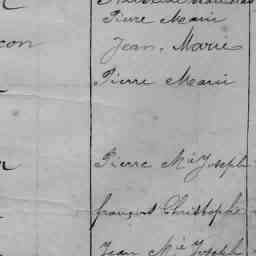 Pierre Marie
con Jean, Marie
Pierre Marie
Pierre Mie Joseph
françois Christophe
Jean Mie Joseph